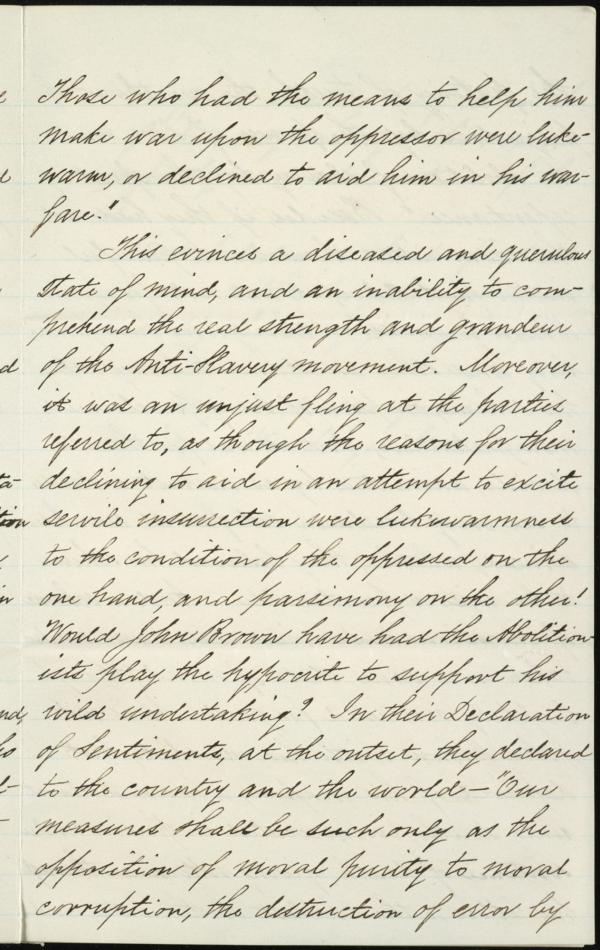 Those who had the means to help him
make war upon the oppressor were luke-
warm, or declined to aid him in his war-
fare."
This evinces a diseased and querulous
state of mind, and an inability to com-
prehend the real strength and grandeur
of the Anti-Slavery movement. Moreover,
it was an unjust fling at the parties
referred to, as though the reasons for their
declining to aid in an attempt to excite
servile insurrection were lukewarmness
to the condition of the oppressed on the
one hand, and parsimony on the other!
Would John Brown have had the Abolition-
ists play the hypocrite to support his
wild undertaking? In their Declaration
of Sentiments, at the outset, they declared
to the country and the world – "Our
measures shall be such only as the
opposition of moral purity to moral
corruption, the destruction of error by